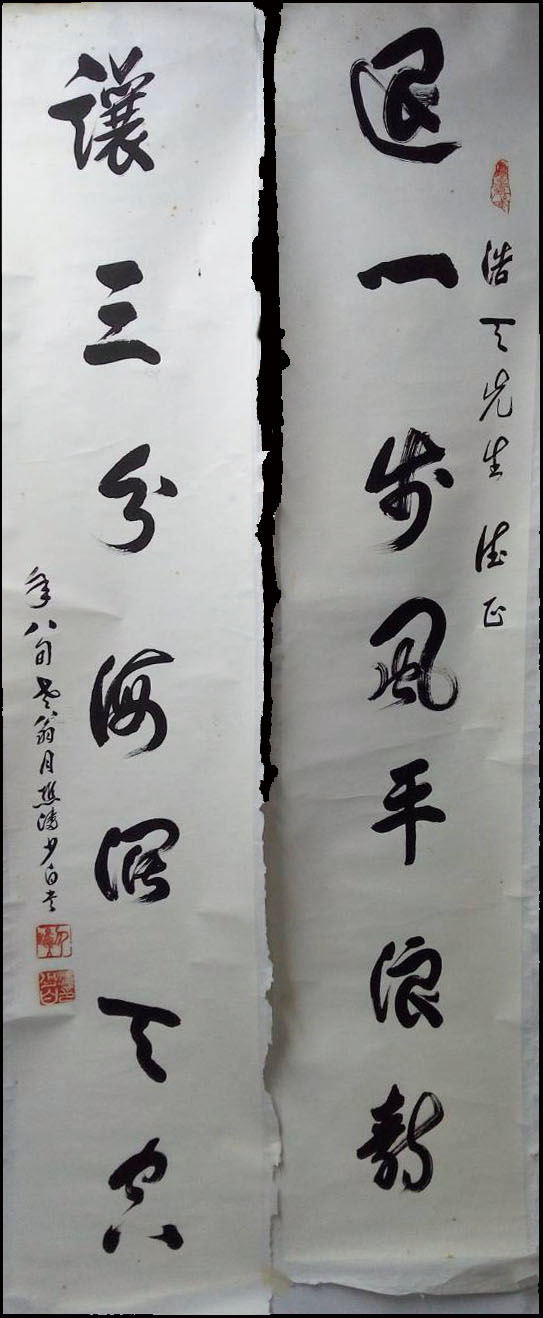 浩天先生 正
退一步風平浪靜
讓三分海闊天空
年八旬老翁月樵 少白書